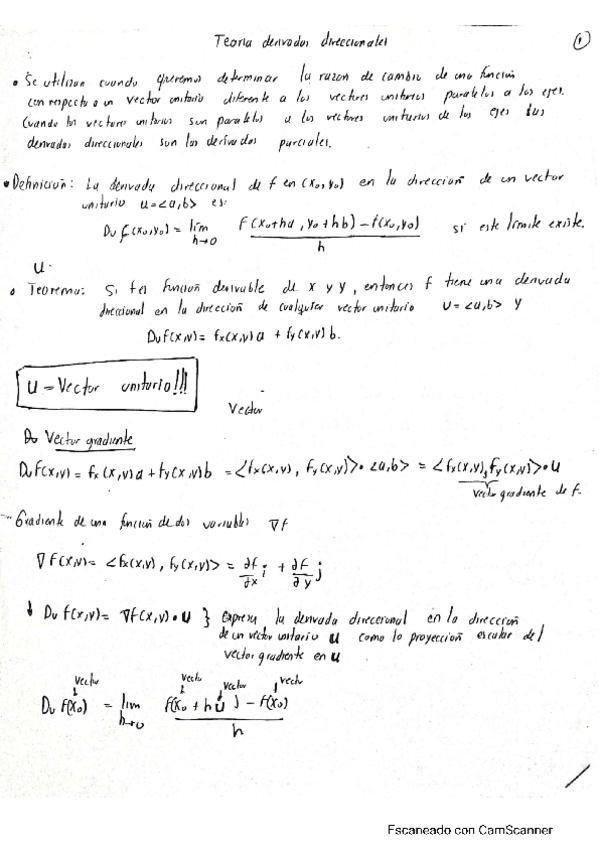 Teoria derivadas direccionales
1
• Se utilizan cuando queremos determinar la razon de cambio de una función
con respecto a un vector unitario diferente a los vectores unitarios paralelos a los ejes.
Cuando los vectores unitarios sun paralelos a los vectores unitarios de los ejes las
derivadas direccionales sun las derivadas parciales.
• Definición: La derivada direccional de f en (x₀,y₀) en la dirección de un vector
unitario u=<a,b> es:
Du f(x₀,y₀) = lim h→0 f(x₀+ha, y₀+hb)-f(x₀,y₀) / h si este límite existe.
U.
• Teorema: Si f es función derivable de x y y, entonces f tiene una derivada
direccional en la dirección de cualquier vector unitario U=<a,b> y
Duf(x,y)= fx(x,y)a + fy(x,y)b.
U = Vector unitario!!!
Vector
Do Vector gradiente
Duf(x,y) = fx(x,y)a + fy(x,y)b = <fx(x,y), fy(x,y)>•<a,b> = <fx(x,y), fy(x,y)>•u
vector gradiente de f.
Gradiente de una función de dos variables ∇f
∇f(x,y)= <fx(x,y), fy(x,y)> = ∂f/∂x i + ∂f/∂y j
Du f(x,y)= ∇f(x,y)•u } Expresa la derivada direccional en la dirección
de un vector unitario u como la proyección escalar del
vector gradiente en u
vector vector vector vector
Du f(x₀) = lim h→0 f(x₀ + hu) - f(x₀) / h
Escaneado con CamScanner